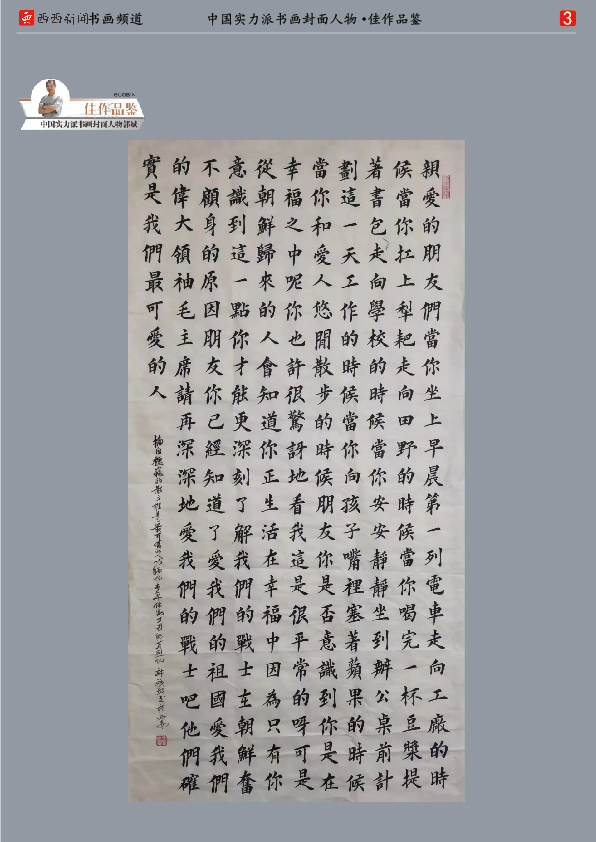 西西新闻书画频道
中国实力派书画封面人物·佳作品鉴
3
GUOBIN
佳作品鉴
中国实力派书画封面人物郭斌
親愛的朋友們當你坐上早晨第一列電車走向工廠的時
候當你扛上犁耙走向田野的時候當你喝完一杯豆漿提
著書包走向學校的時候當你安安靜靜坐到辦公桌前計
劃這一天工作的時候當你向孩子嘴裡塞著蘋果的時候
當你和愛人悠閒散步的時候朋友你是否意識到你是在
幸福之中呢你也許很驚訝地看我這是很平常的呀可是
從朝鮮歸來的人會知道你正生活在幸福中因為只有你
意識到這一點你才能更深刻了解我們的戰士在朝鮮奮
不顧身的原因朋友你已經知道了愛我們的祖國愛我們
的偉大領袖毛主席請再深深地愛我們的戰士吧他們確
實是我們最可愛的人
摘自魏巍的散文誰是最可愛的人